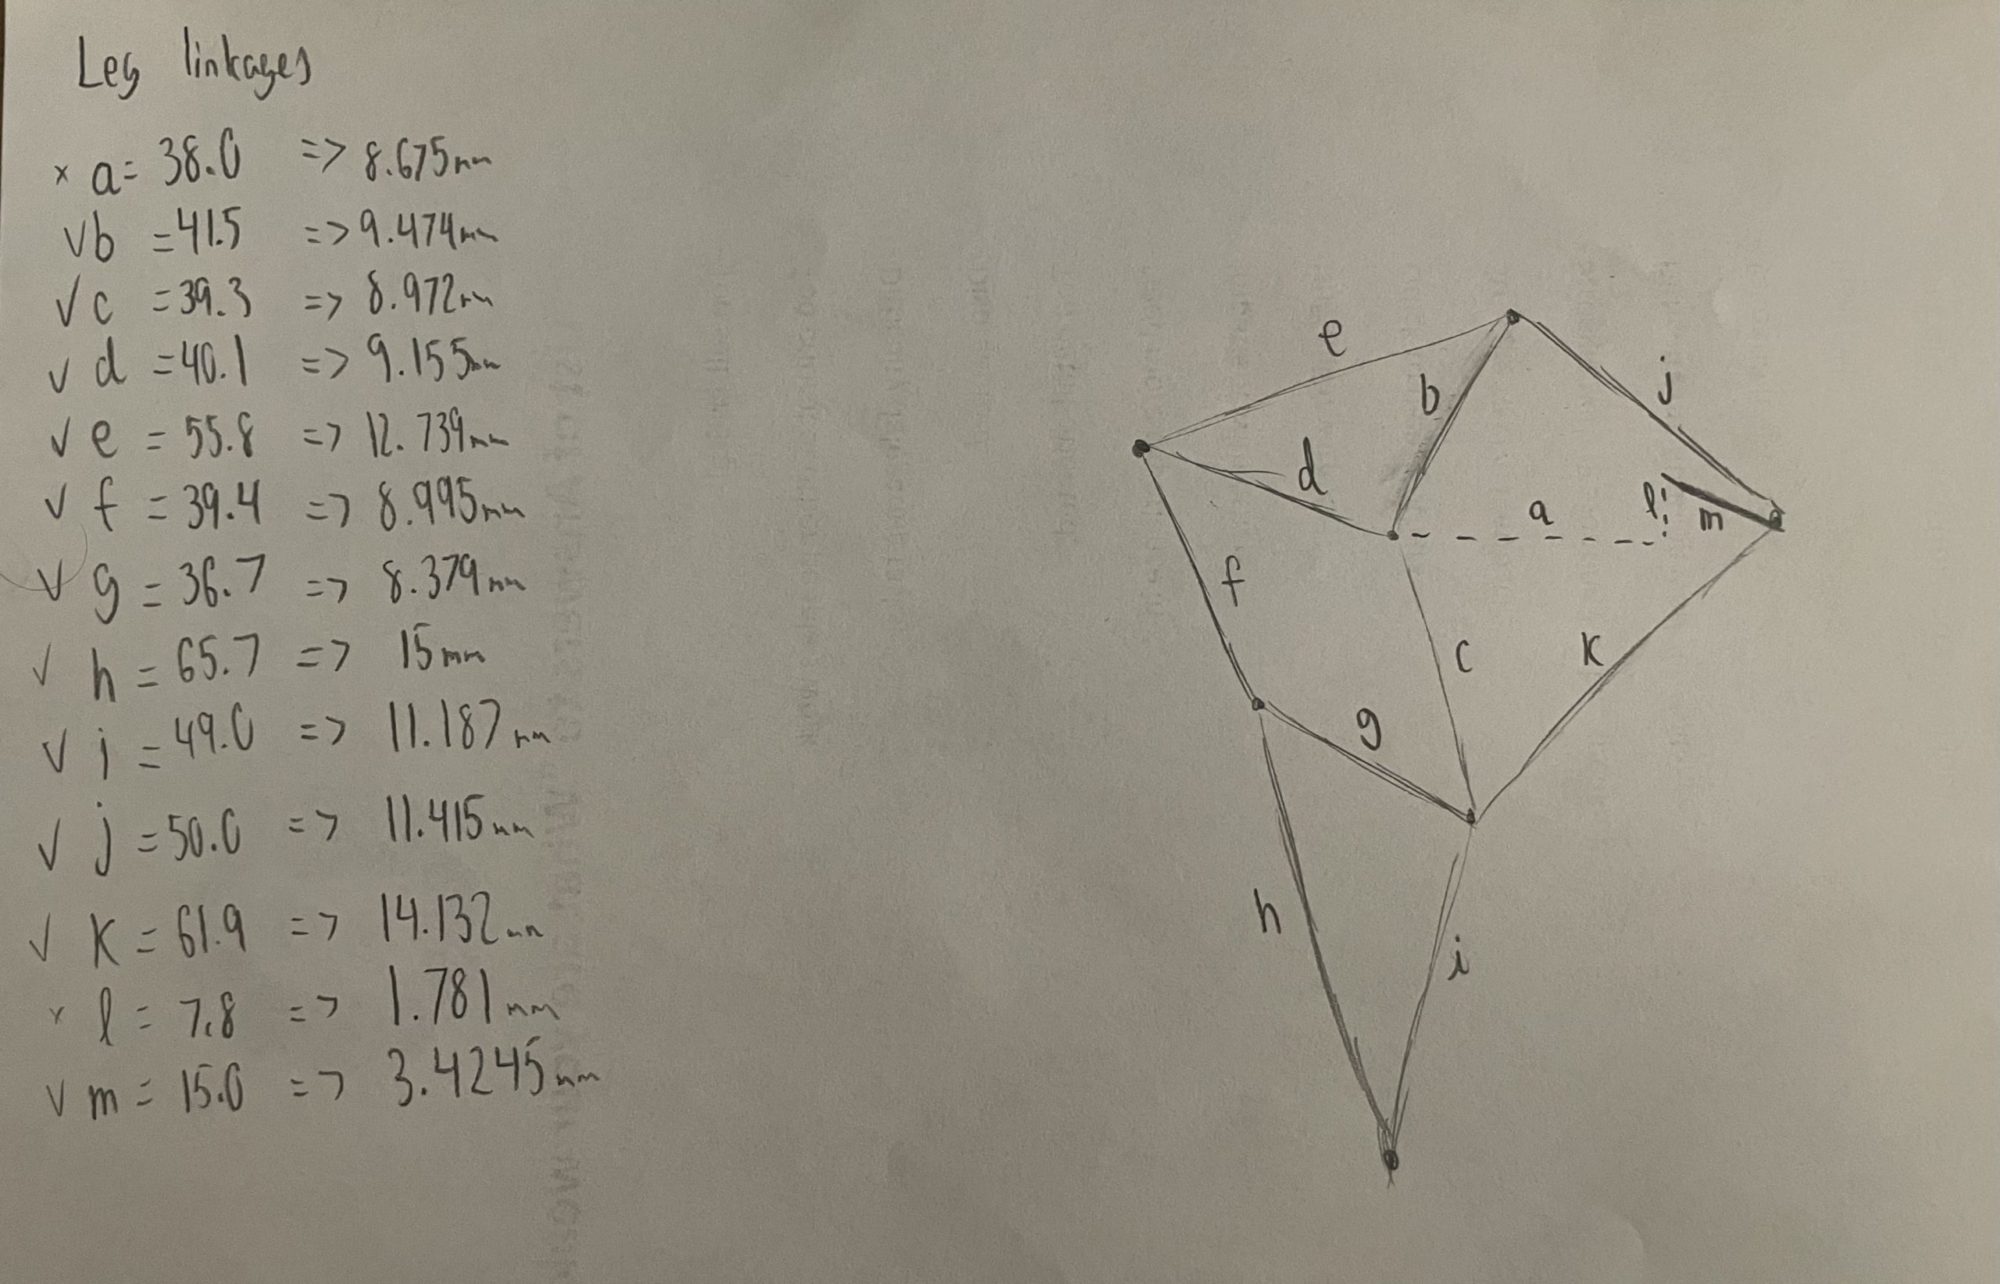 Leg linkages
× a = 38.0 => 8.675mm
√ b = 41.5 => 9.474mm
√ c = 39.3 => 8.972mm
√ d = 40.1 => 9.155mm
√ e = 55.8 => 12.739mm
√ f = 39.4 => 8.995mm
√ g = 36.7 => 8.379mm
√ h = 65.7 => 15mm
√ i = 49.0 => 11.187mm
√ j = 50.0 => 11.415mm
√ k = 61.9 => 14.132mm
× l = 7.8 => 1.781mm
√ m = 15.0 => 3.4245mm
e
j
b
d
l
m
a
f
c
k
g
h
i